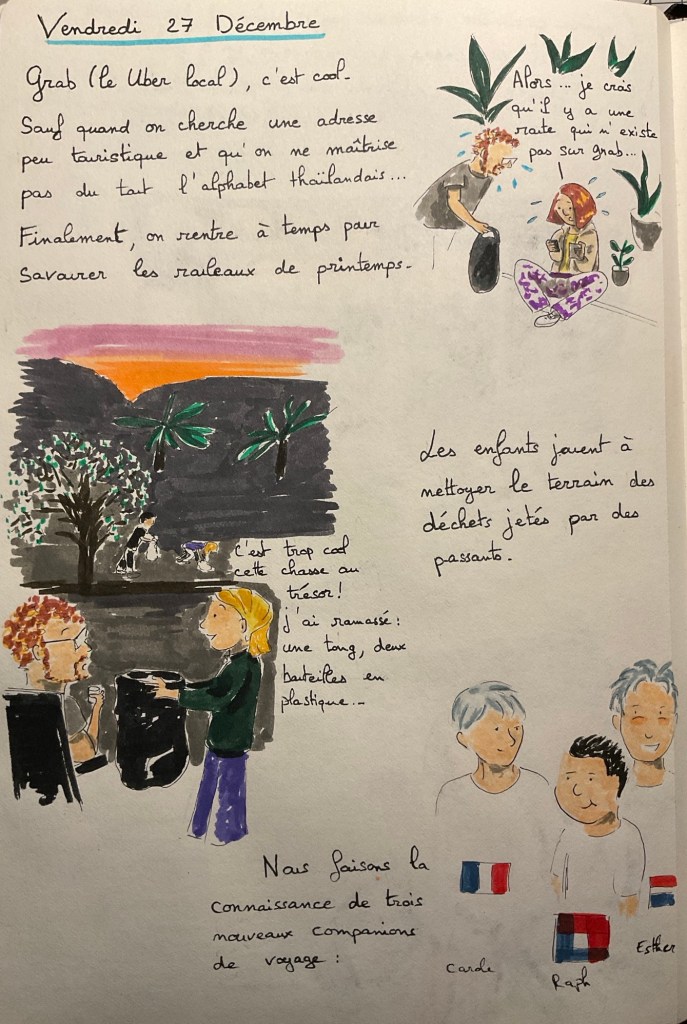 Vendredi 27 Décembre
Grab (le Uber local), c'est cool.
Sauf quand on cherche une adresse
peu touristique et qu'on ne maîtrise
pas du tout l'alphabet thaïlandais...
Finalement, on rentre à temps pour
savourer les rouleaux de printemps.
Alors... je crois
qu'il y a une
route qui n'existe
pas sur grab...
Les enfants jouent à
nettoyer le terrain des
déchets jetés par des
passants.
c'est trop cool
cette chasse au
trésor!
j'ai ramassé:
une tong, deux
bouteilles en
plastique...
Nous faisons la
connaissance de trois
nouveaux companions
de voyage :
Carole
Raph
Esther